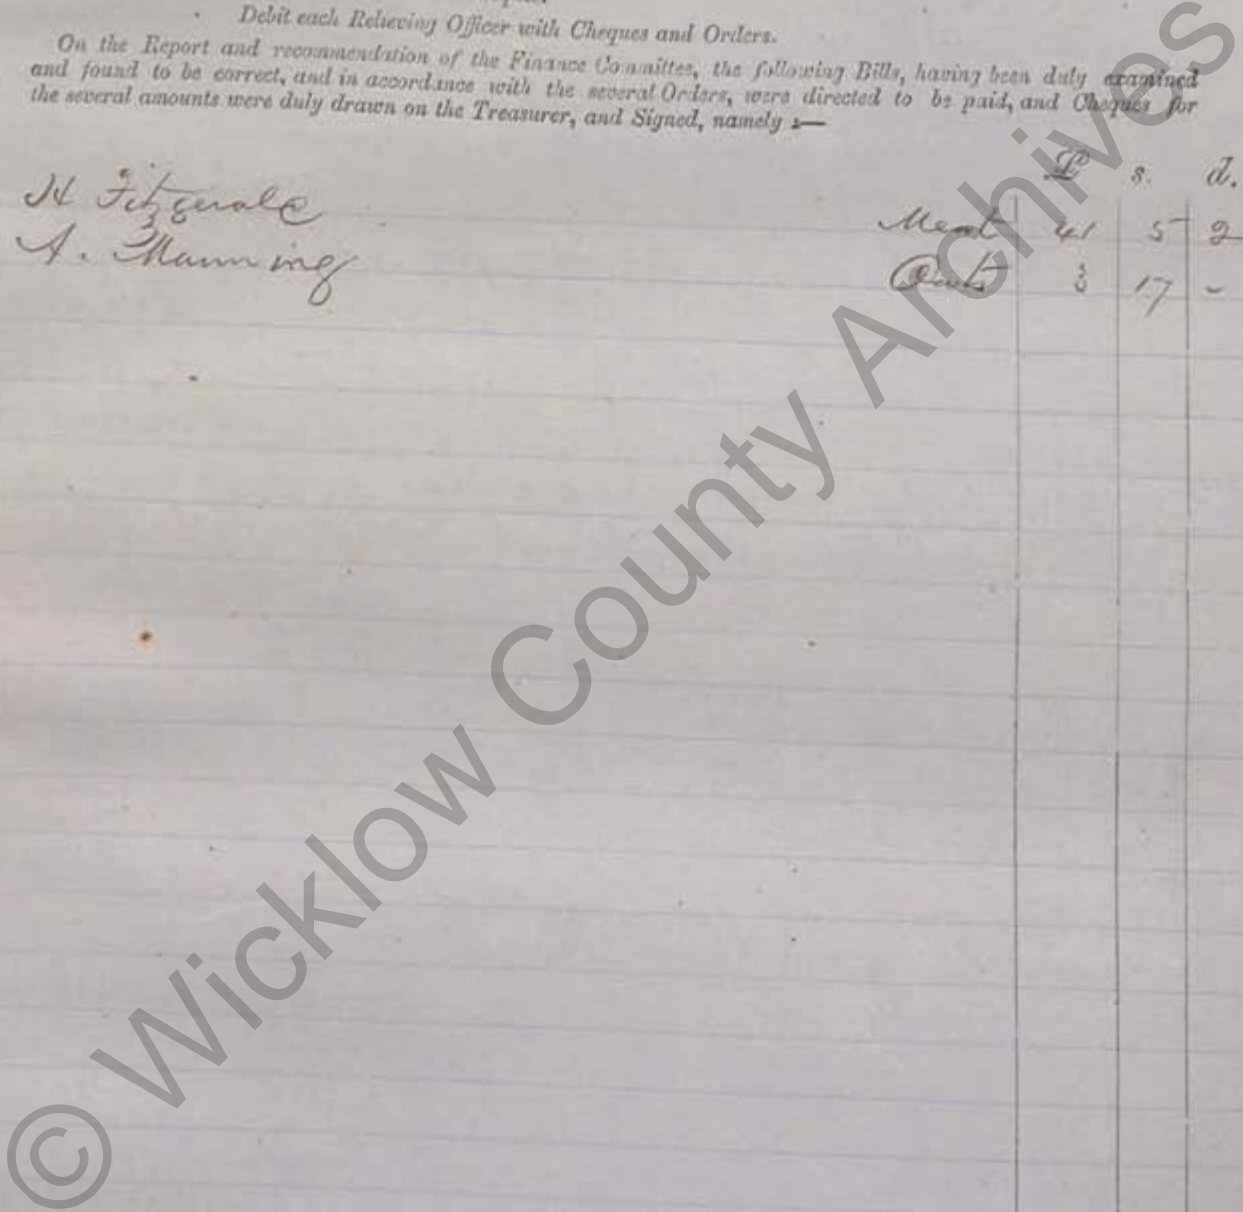 Debit each Relieving Officer with Cheques and Orders.
On the Report and recommendation of the Finance Committee, the following Bills, having been duly examined
and found to be correct, and in accordance with the several Orders, were directed to be paid, and Cheques for
the several amounts were duly drawn on the Treasurer, and Signed, namely :—
£ s. d.
H Fitzgerald Meat 41 5 2
A. Manning 3 17 -
© Wicklow County Archives